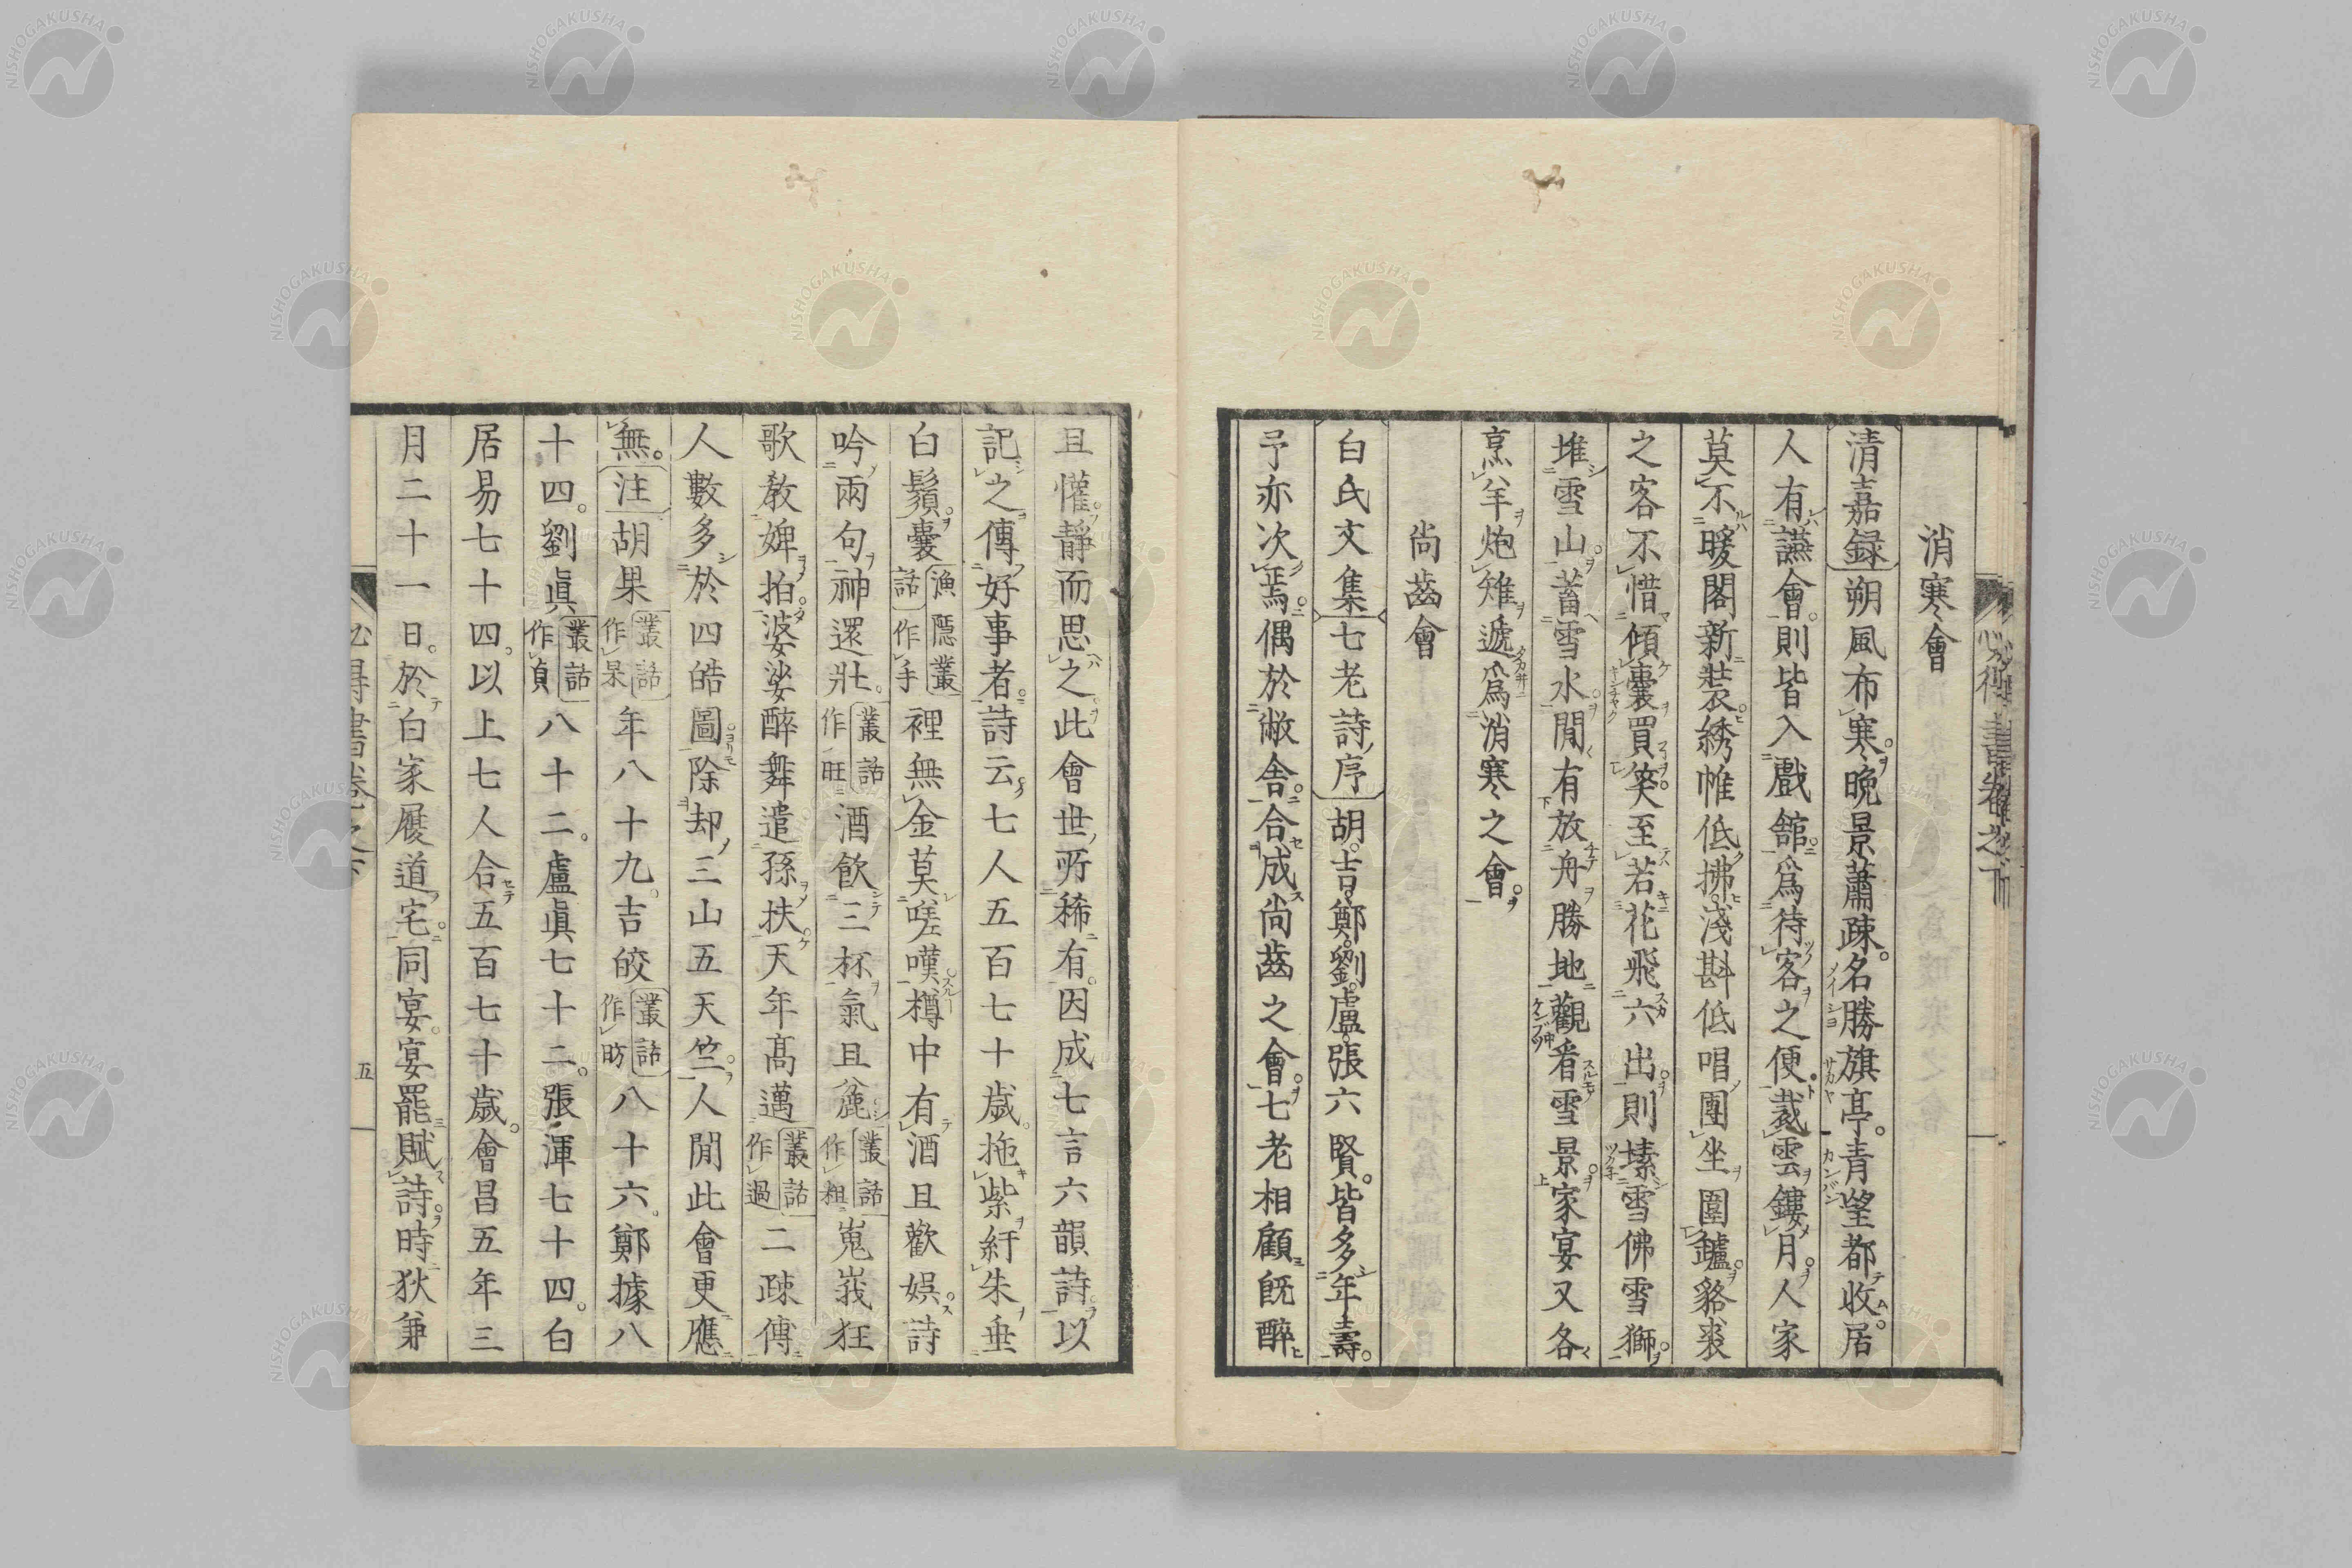 消寒會
清嘉録朔風布寒晩景蕭疎名勝旗亭青望都收居
人有讌會則皆入戲舘爲待客之便裁雲鏤月人家
莫不暖閣新装綉帷低拂淺斟低唱團坐圍鑪貉裘
之客不惜傾囊買笑至若花飛六出則塐雪佛雪獅
堆雪山蓄雪水閒有放舟勝地觀看雪景家宴又各
烹羊炮雉遞爲消寒之會
尙齒會
白氏文集七老詩序胡吉鄭劉盧張六賢皆多年壽
予亦次焉偶於敝舍合成尚齒之會七老相顧既醉
且懽靜而思之此會世所稀有因成七言六韻詩以
記之傳好事者詩云七人五百七十歳拖紫紆朱垂
白鬚囊漁隱叢話作手裡無金莫嗟嘆樽中有酒且歡娯詩
吟兩句神還壯叢話作旺酒飲三杯氣且麁叢話作粗嵬峩狂
歌敎婢拍婆娑醉舞遣孫扶天年髙邁叢話作過二疎傳
人數多於四皓圖除却三山五天竺人閒此會更應
無注胡果叢話作杲年八十九吉皎叢話作昉八十六鄭據八
十四劉眞叢話作貞八十二盧眞七十二張渾七十四白
居易七十四以上七人合五百七十歳會昌五年三
月二十一日於白家履道宅同宴宴罷賦詩時狄兼
五